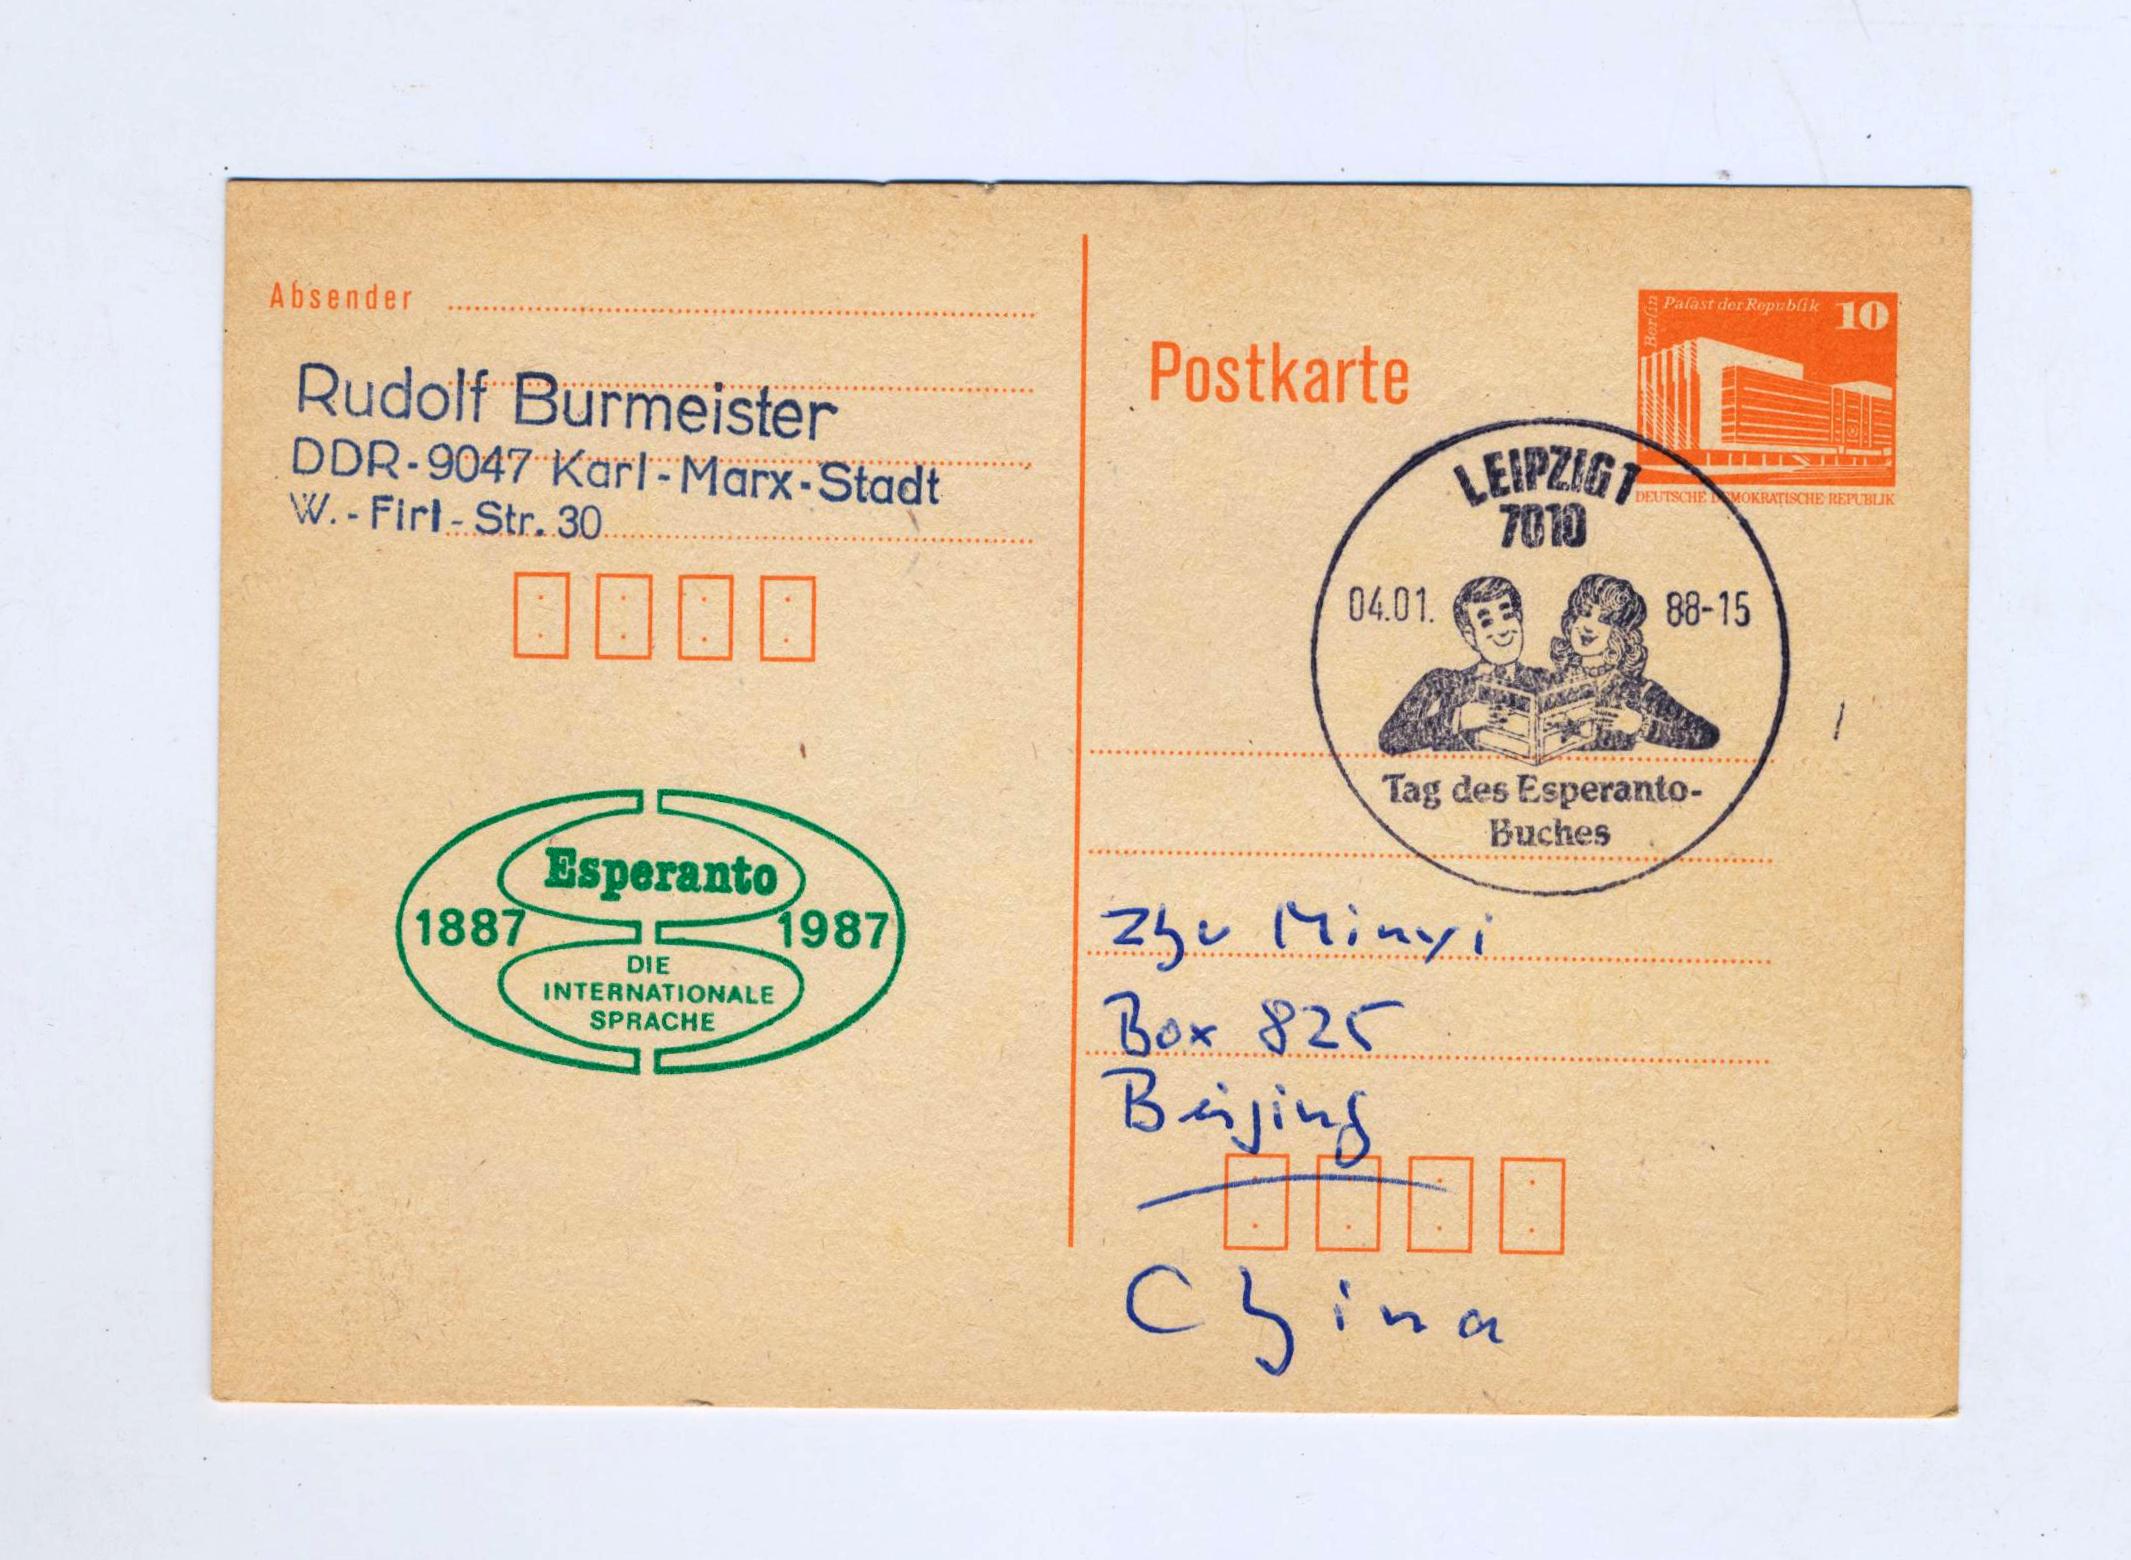 Absender
Rudolf Burmeister
DDR-9047 Karl-Marx-Stadt
W.-Firl-Str. 30
Esperanto
1887 1987
DIE
INTERNATIONALE
SPRACHE
Postkarte
Berlin
Palast der Republik 10
DEUTSCHE DEMOKRATISCHE REPUBLIK
LEIPZIG 1
7010
04.01. 88-15
Tag des Esperanto-
Buches
Zhu Minyi
Box 825
Beijing
China